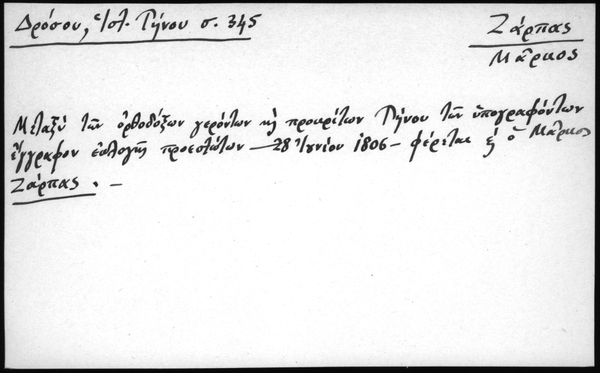 Δρόσου, Ἱστ. Τήνου σ. 345
Ζάρπας
Μᾶρκος
Μεταξὺ τῶν ὀρθοδόξων γερόντων κὴ προκρίτων Τήνου τῶν ὑπογραφόντων
ἔγγραφον ἐκλογῆς προεστώτων — 28 Ἰουνίου 1806 — φέρεται κὴ ὁ Μᾶρκος
Ζάρπας . –